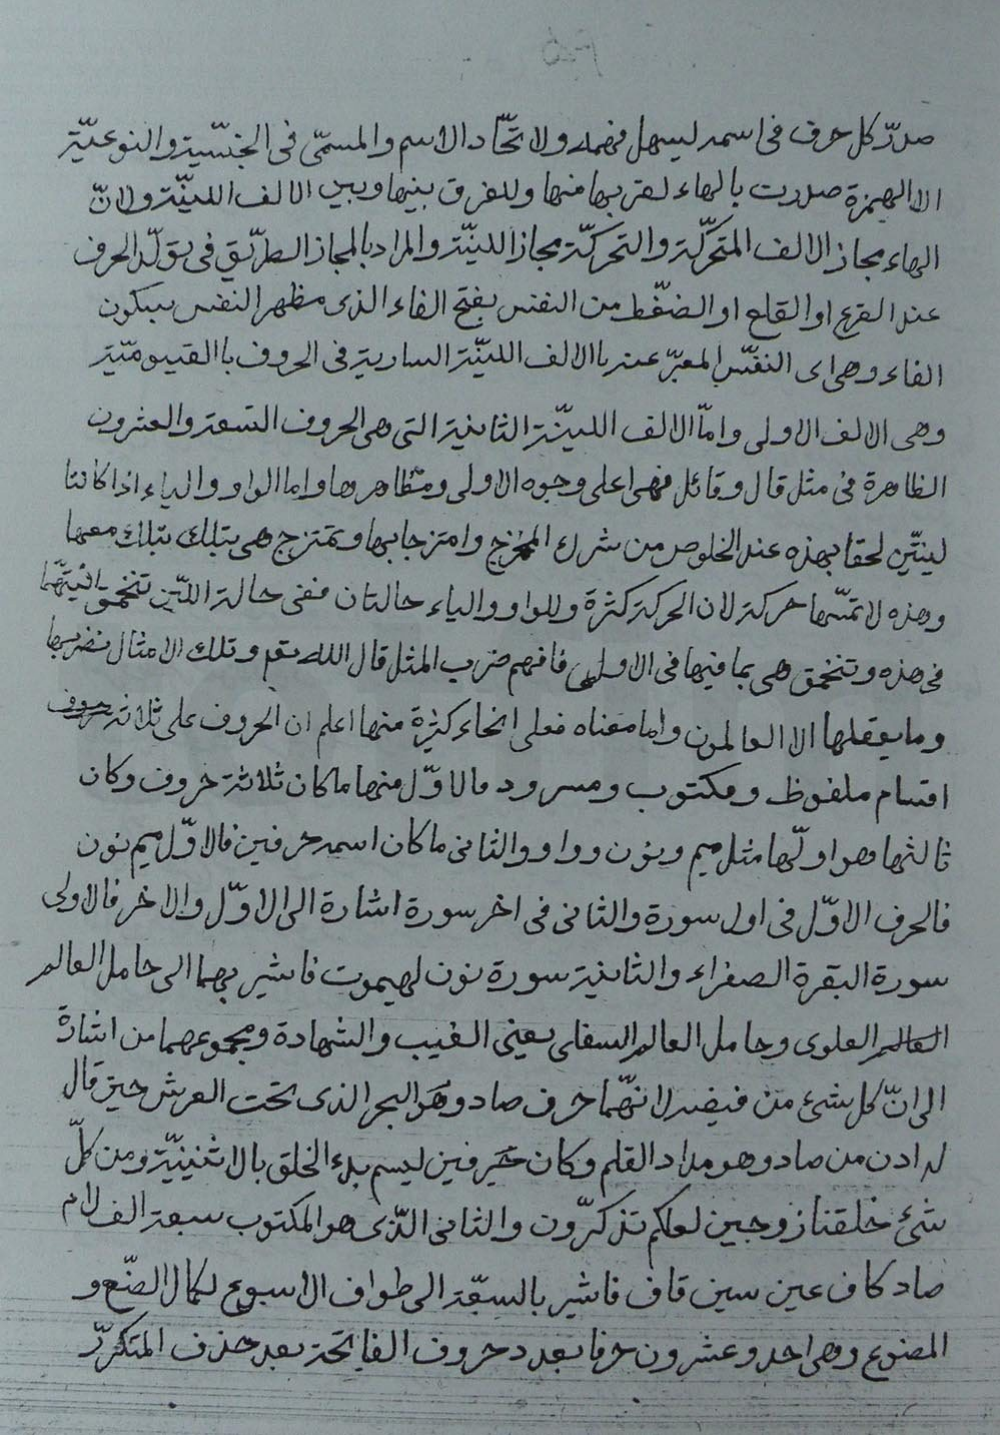 صدّر كل حرف فى اسمه ليسهل فهمه ولاتحّاد الاسم والمسمّى فى الجنّسية والنوعيّة
الا الهمزة صدرت بالهاء لقربها منها وللفرق بينها وبين الالف اللينّة ولانّ
الهاء مجاز الالف المتحرّكة والتحركة مجاز اللينّة والمراد بالمجاز الطرّيق فى تولّد الحرف
عند القرع او القلع او الضغّط من النفس بفتح الفاء الذى مظهر النفس بسكون
الفاء وهى اى النفّس المعبّر عنه باالالف اللينّة السارية فى الحروف باالقيوميّة
وهى الالف الاولى وامّا الالف اللينّة الثانية التى هى الحروف التسعة والعشرون
الظاهرة فى مثل قال وقائل فهى اعلى وجوه الاولى ومظاهرها واما الواو والياء اذا كانتا
لينتّين لحقا بهذه عند الخلوص من شرك المخرج وامتزجا بها وتمتزج هى بتلك بتلك معها
وهذه لا تمسّها حركة لان الحركة كثرة وللواو والياء حالتان ففى حالة اللّين تنخمق انّيتّهما
فى هذه وتنخمق هى بما فيها فى الاولى فافهم ضرب المثل قال الله تعم وتلك الامثال نضربها
وما يعقلها الا العالمون واما معناه فعلى انحاء كثيرة منها اعلم ان الحروف على ثلاثة حروف
اقسام ملفوظ ومكتوب ومسرود فالاوّل منها ما كان ثلاثة حروف وكان
ثالثها هو اولّها مثل ميم ونون وواو والثانى ما كان اسمه حرفين فالاوّل ميم نون
فالحرف الاوّل فى اول سورة والثانى فى اخر سورة اشارة الى الاوّل والاخر فالاولى
سورة البقرة الصفراء والثانية سورة نون لهيموت فاشير بهما الى حامل العالم
العالم العلوى وحامل العالم السفلى يعنى الغيب والشهادة ومجموعهما من اشارة
الى انّ كل شئ من فيضه لانهّما حرف صاد وهو البحر الذى تحت العرش حين قال
له ادن من صاد وهو مداد القلم وكان حرفين ليسم بدء الخلق بالاثنينيّة ومن كلّ
شئ خلقنا زوجين لعلكم تذكرّون والثانى الذّى هو المكتوب سبعة الف لام
صاد كاف عين سين قاف فاشير بالسبّعة الى طواف الاسبوع لكمال الصنّع و
المصنوع وهى احد وعشرون حرفا بعدد حروف الفاتحة بعد حذف المتكررّ